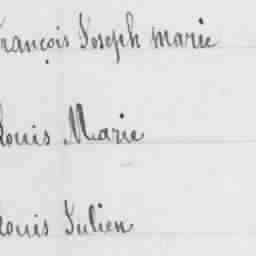 François Joseph marie
Louis Marie
Louis Julien